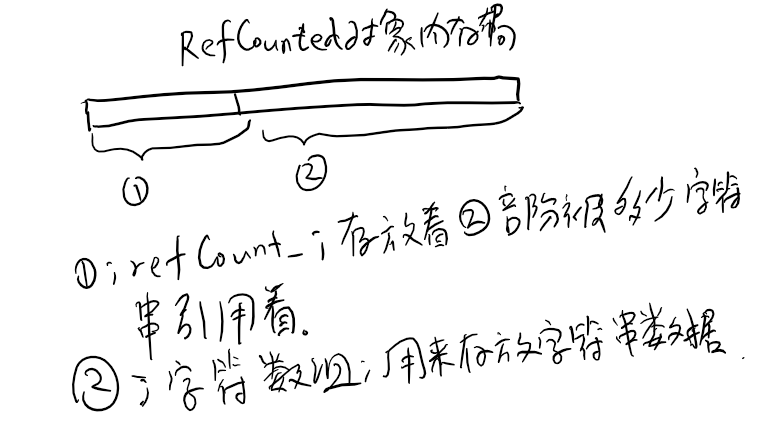 RefCounted对象内存布局
① ②
①; refCount_; 存放着②部份被多少字符
串引用着。
②; 字符数组; 用来存放字符串数据.